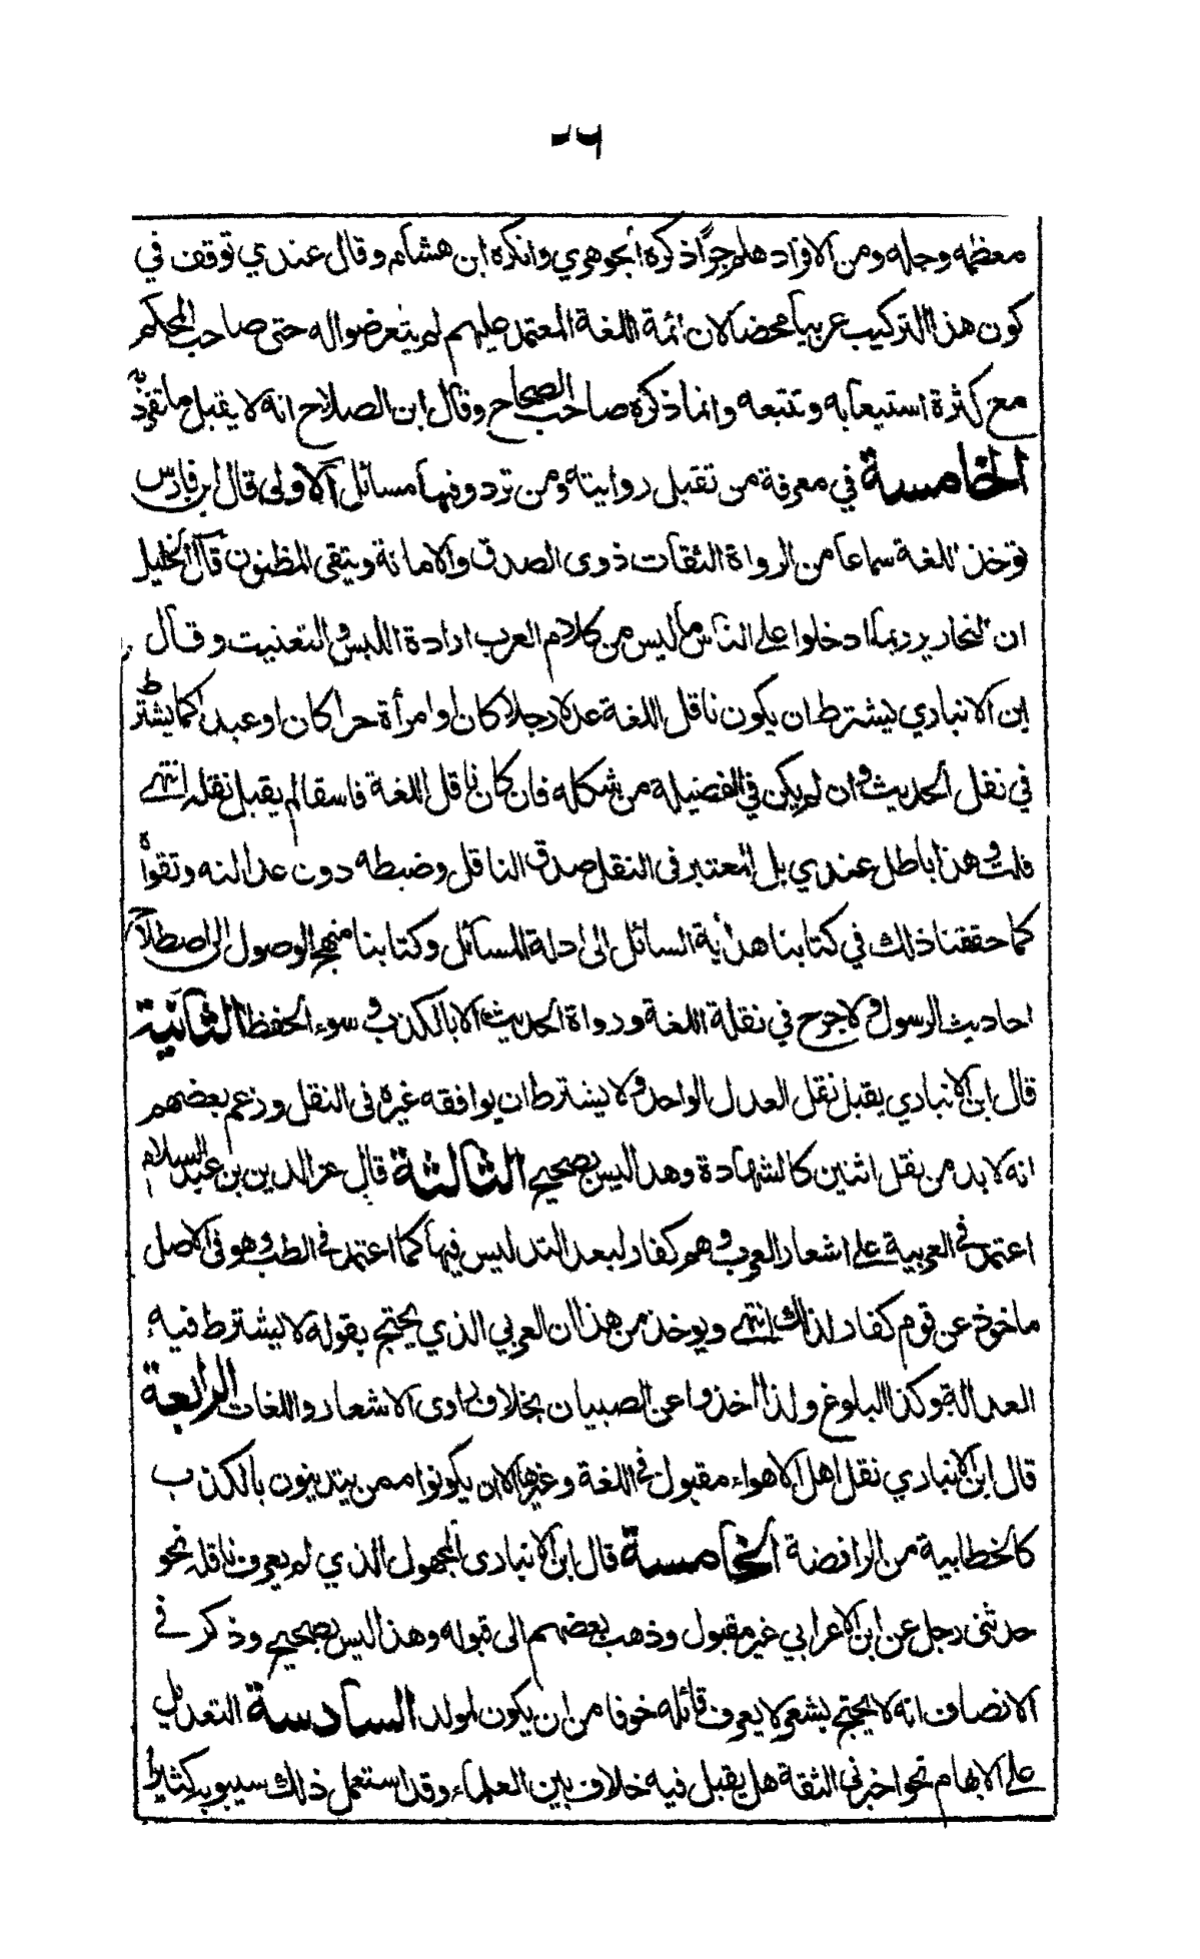 معظمه وجله ومن الافراد هلم جرًّا ذكره الجوهري وانكره ابن هشام وقال عندي توقف في
كون هذا التركيب عربيا محضا لان ائمة اللغة المعتمد عليهم لم يتعرضوا له حتى صاحب المحكم
مع كثرة استيعابه وتتبعه وانما ذكره صاحب الصحاح وقال ابن الصلاح انه لا يقبل ما تفرّد به
الخامسة في معرفة من تقبل روايته ومن ترد وفيها مسائل الاولى قال ابن فارس
توخذ اللغة سماعا من الرواة الثقات ذوى الصدق والامانة ويتقى المظنون قال الخليل
ان النحارير ربما ادخلوا على الناس ما ليس من كلام العرب ارادة اللبس والتعنيت وقال
ابن الانباري يشترط ان يكون ناقل اللغة عدلا رجلا كان او امرأة حرا كان او عبدا كما يشترط
في نقل الحديث وان لم يكن في الفضيلة من شكله فان كان ناقل اللغة فاسقا لم يقبل نقله انتهى
قلت وهذا باطل عندي بل المعتبر في النقل صدق الناقل وضبطه دون عدالته وتقواه
كما حققنا ذلك في كتابنا هداية السائل الى ادلة المسائل وكتابنا منهج الوصول الى اصطلاح
احاديث الرسول ولا جرح في نقلة اللغة ورواة الحديث الا بالكذب وسوء الحفظ الثانية
قال ابن الانباري يقبل نقل العدل الواحد ولا يشترط ان يوافقه غيره في النقل وزعم بعضهم
انه لا بد من نقل اثنين كالشهادة وهذا ليس بصحيح الثالثة قال عز الدين بن عبد السلام
اعتمد في العربية على اشعار العرب وهم كفار لبعد التدليس فيها كما اعتمد في الطب وهو في الاصل
ماخوذ عن قوم كفار لذلك انتهى ويوخذ من هذا ان العربي الذي يحتج بقوله لا يشترط فيه
العدالة وكذا البلوغ ولذا اخذوا عن الصبيان بخلاف راوى الاشعار واللغات الرابعة
قال ابن الانباري نقل اهل الاهواء مقبول في اللغة وغيرها الا ان يكونوا ممن يتدينون بالكذب
كالخطابية من الرافضة الخامسة قال ابن الانبارى المجهول الذي لم يعرف ناقله نحو
حدثنى رجل عن ابن الاعرابي غير مقبول وذهب بعضهم الى قبوله وهذا ليس بصحيح وذكر في
الانصاف انه لا يحتج بشعر لا يعرف قائله خوفا من ان يكون لمولد السادسة التعديل
على الابهام نحو اخبرني الثقة هل يقبل فيه خلاف بين العلماء وقد استعمل ذلك سيبويه كثيرا